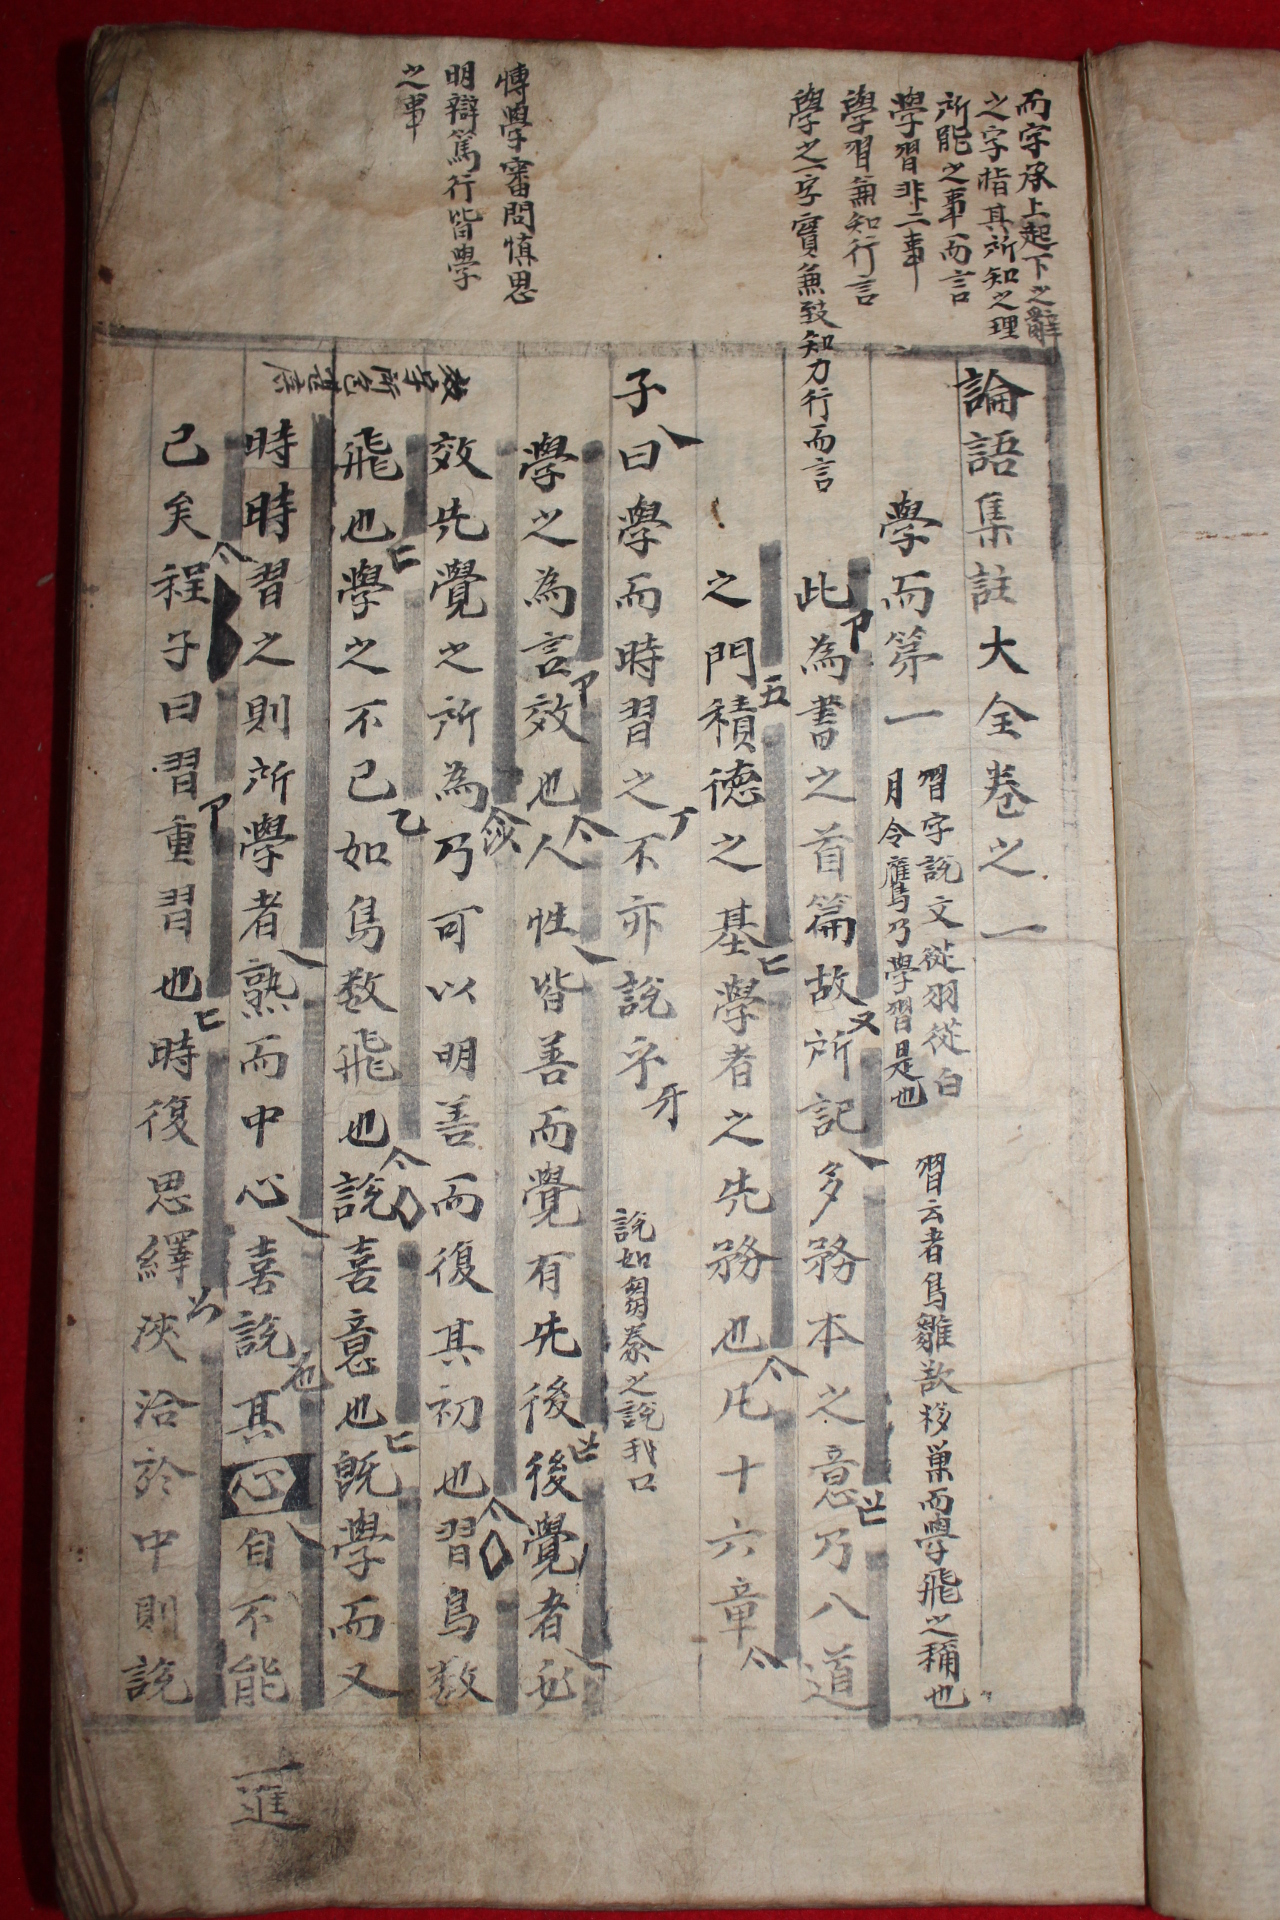 而字承上起下之辭
之字指其所知之理
所能之事而言
學習非二事
學習兼知行言
學之一字實兼致知力行而言
博學審問愼思
明辯篤行皆學
之事
論語集註大全卷之一
學而第一
習字說文從羽從白
月令鷹乃學習是也
習云者鳥雛欲移巢而學飛之稱也
此為書之首篇故所記多務本之意乃八道
之門積德之基學者之先務也凡十六章
子曰學而時習之不亦說乎
說如芻豢之說我口
學之為言效也人性皆善而覺有先後後覺者必
效先覺之所為乃可以明善而復其初也習鳥數
飛也學之不已如鳥數飛也說喜意也旣學而又
時時習之則所學者熟而中心喜說其心自不能
已矣程子曰習重習也時復思繹浹洽於中則說
一進